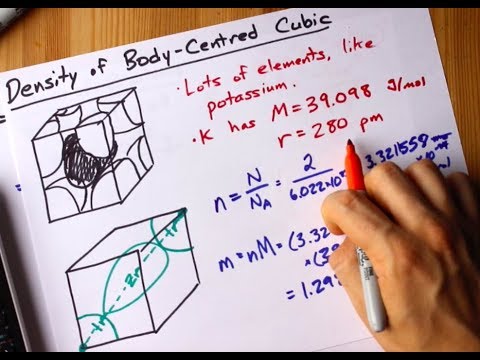 Density of Body-Centred Cubic
• Lots of elements, like
potassium.
• K has M = 39.098 g/mol
r = 280 pm
n = N/NA = 2/6.022×10 3.321558
m = nM = (3.32
= 1.29
1r
2r
1r